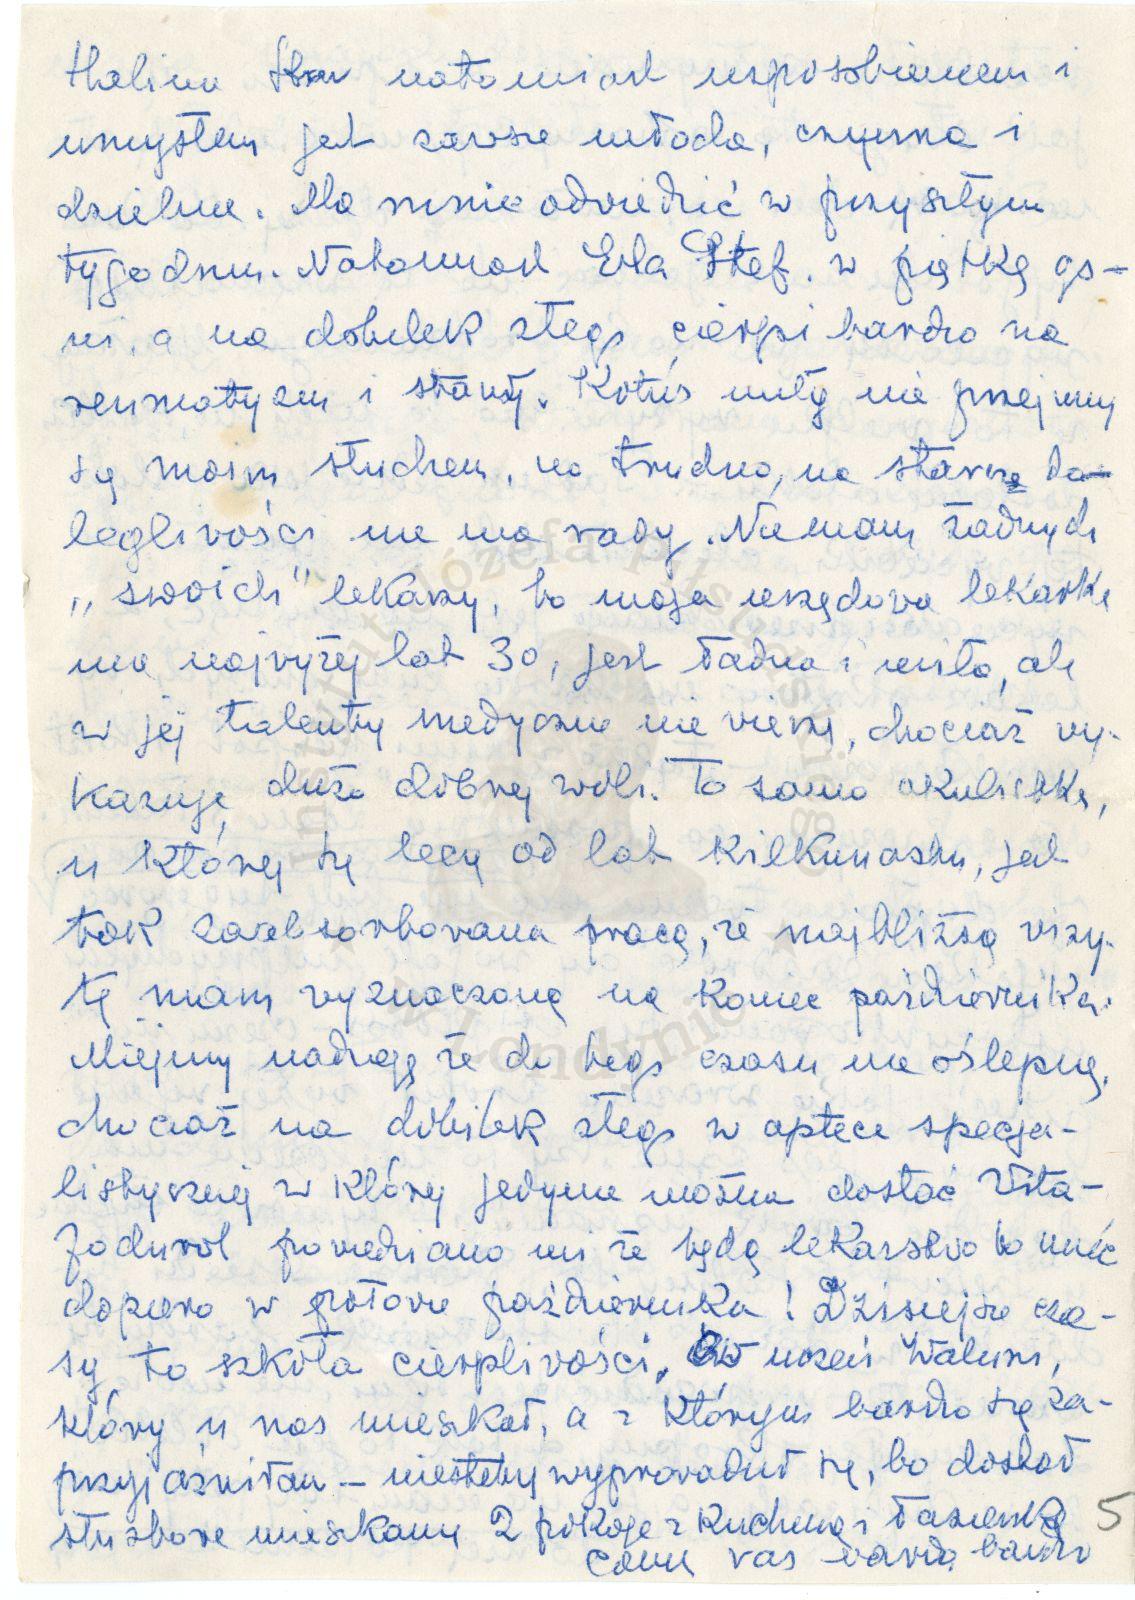 Halina natomiast usposobieniem i
umysłem jest zawsze młoda, czynna i
dzielna. Ma mnie odwiedzić w przyszłym
tygodniu. Natomiast Ewa Stef. w piętkę go-
ni, a na dobitek złego cierpi bardzo na
reumatyzm i stawy. Kotuś miły nie przejmuj
się moim słuchem, no trudno, na starsze do-
legliwości nie ma rady. Nie mam żadnych
„swoich" lekarzy, bo moja urzędowa lekarka
ma najwyżej lat 30, jest ładna i miła, ale
w jej talenty medyczne nie wierzę, chociaż wy-
kazuje dużo dobrej woli. To samo okulistka,
u której się leczę od lat kilkunastu, jest
tak zaabsorbowana pracą, że najbliższą wizy-
tę mam wyznaczoną na koniec października.
Miejmy nadzieję że do tego czasu nie oślepnę,
chociaż na dobitek złego w aptece specja-
listycznej w której jedynie można dostać Vita-
Jodurol powiedziano mi że będą lekarstwo to mieć
dopiero w połowie października! Dzisiejsze cza-
sy to szkoła cierpliwości. uczeń Waluni,
który u nas mieszkał, a z którym bardzo się za-
przyjaźniłam – niestety wyprowadził się, bo dostał
służbowe mieszkanie 2 pokoje z kuchnią i łazienką 5
Całuję was bardzo bardzo
Instytut Józefa Piłsudskiego
w Londynie